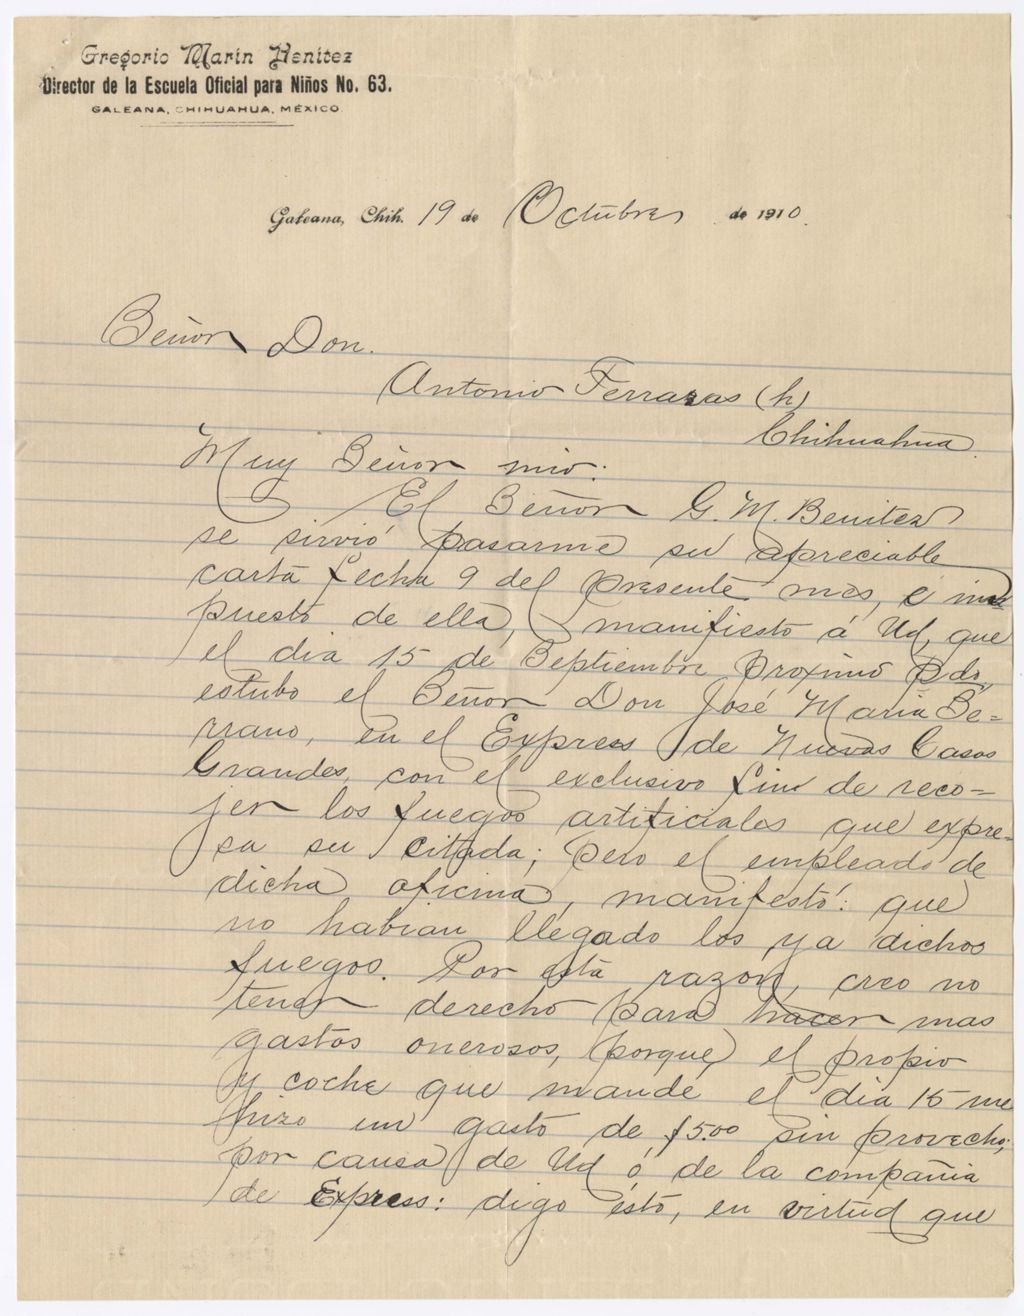 Gregorio Marín Benítez
Director de la Escuela Oficial para Niños No. 63.
GALEANA, CHIHUAHUA, MÉXICO
Galeana, Chih. 19 de Octubre de 1910.
Señor Don.
Antonio Terrazas (h)
Chihuahua.
Muy Señor mio:
El Señor G. M. Benitez
se sirvió pasarme su apreciable
carta fecha 9 del presente mes, é im
puesto de ella, manifiesto á Ud, que
el dia 15 de Septiembre proximo pdo,
estubo el Señor Don José Maria Se=
rrano, en el Express de Nuevas Casas
Grandes, con el exclusivo fin de reco=
jer los fuegos artificiales que expre=
sa su citada; pero el empleado de
dicha oficina, manifestó: que
no habian llegado los ya dichos
fuegos. Por está razon, creo no
tener derecho para hacer mas
gastos onerosos, porque, el propio
y coche que mande el dia 15 me
hizo un gasto de $5.00 sin provecho,
por causa de Ud ó de la compañia
de Express: digo ésto, en virtud que